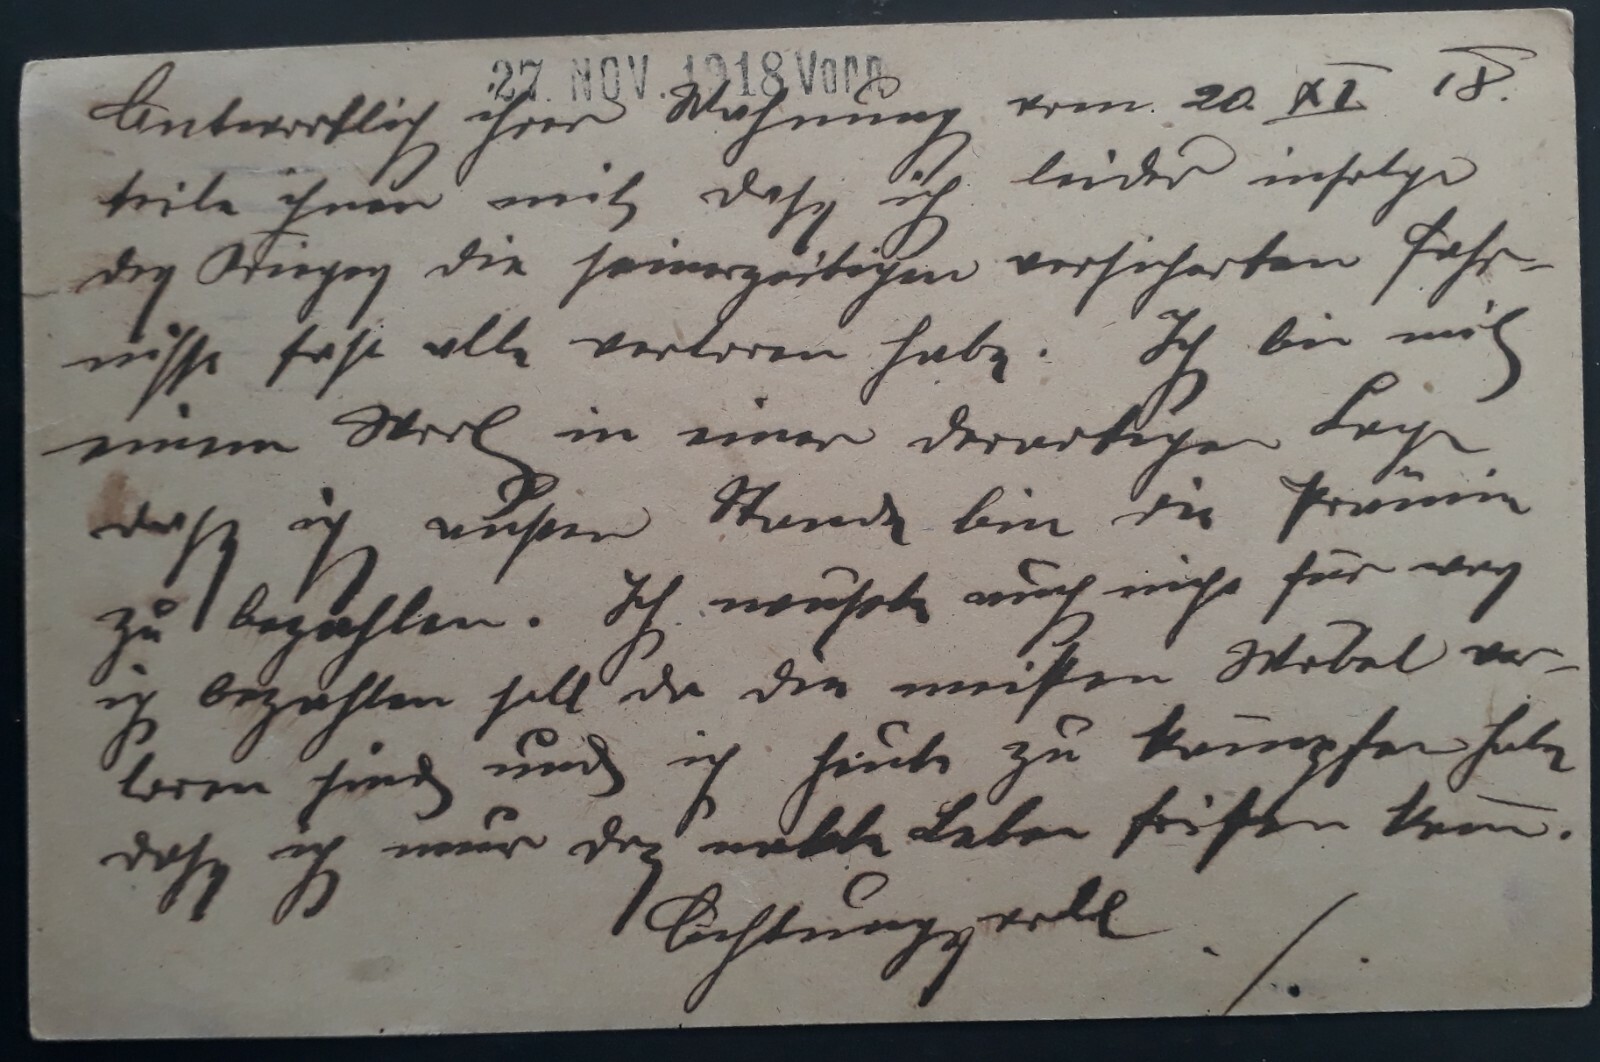 27. NOV. 1918 Vorm
Antwortlich ihrer Mahnung vom 20. XI 18.
teile ihnen mit dass ich leider infolge
des Krieges die seinerzeitigen versicherten Fahr-
nisse fast alle verloren habe. Ich bin mit
einem Wort in einer derartigen Lage
dass ich außer Stande bin die Prämie
zu bezahlen. Ich wüsste auch nicht für was
ich bezahlen soll da die meisten Möbel ver-
loren sind und ich heute zu kämpfen habe
dass ich nur das nakte Leben fristen kann.
Achtungsvoll